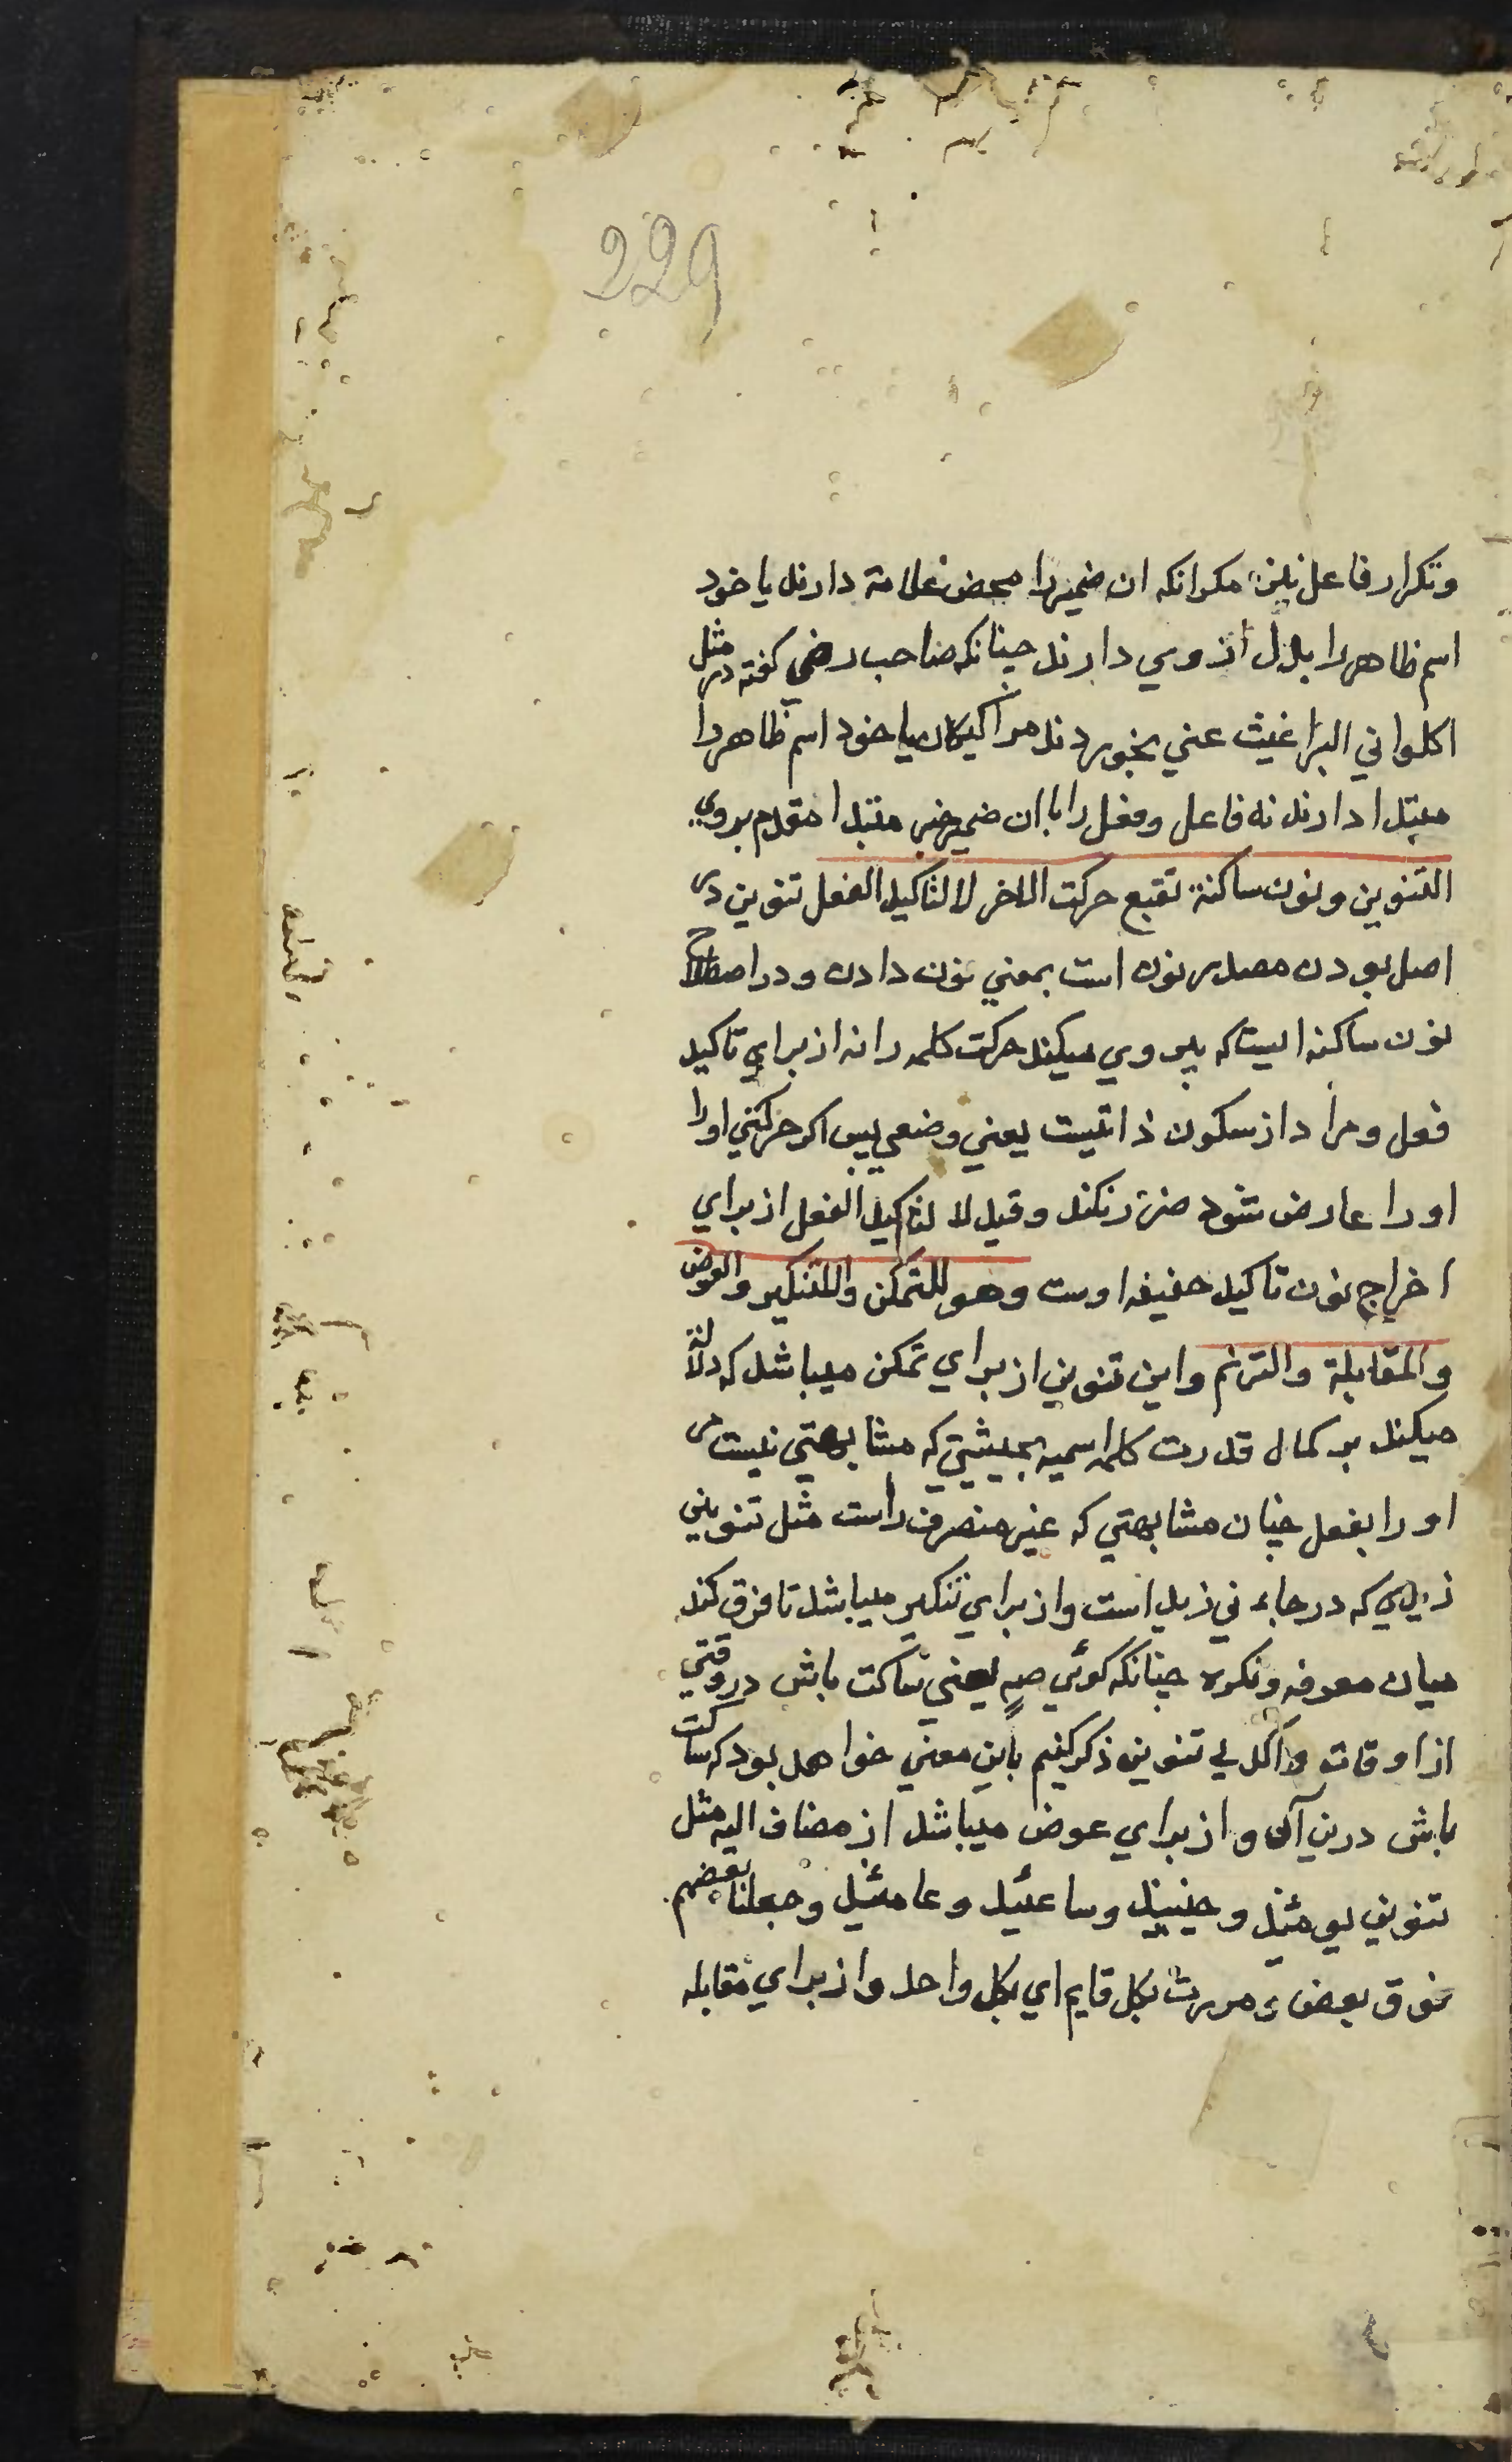 229
وتکرار فاعل نیز، مکر انکه ان ضمیر را محض علامة دارند یا خود
اسم ظاهر را بدل از وي دارند چنانکه صاحب رضي کفته در مثل
اکلواني البراغیث عني بخوردند مرا کیکان یا خود اسم ظاهر را
مبتدا دارند نه فاعل وفعل را با ان ضمیر خبر مبتدا مقدم بروي
التنوین ونون ساکنة تتبع حرکت الاخر لا لتاکید الفعل تنوین در
اصل بودن مصدر نون است بمعني نون دادن ودر اصطلاح
نون ساکنه ایست که پیروي میکند حرکت کلمه را نه از براي تاکید
فعل ومراد از سکون ذاتیست یعني وضعي پس اکر حرکتي اورا
اورا عارض شود ضرر نکند وقید لا لتاکید الفعل از براي
اخراج نون تاکید خفیفه اوست وهو للتمکن والتنکیر والعوض
والمقابلة والترنم واین تنوین از براي تمکن میباشد که دلالة
میکند بر کمال قدرت کلمه اسمیه بحیثیتي که مشابهتي نیست مر
اورا بفعل چنان مشابهتي که غیر منصرف راست مثل تنوین
زیدي که در جاء ني زید است واز براي تنکیر میباشد تا فرق کند
میان معرفه ونکره چنانکه کوئي صهٍ یعني ساکت باش در وقتي
از اوقات واکر بي تنوین ذکر کنیم باین معني خواهد بود که ساکت
باش درین آن واز براي عوض میباشد از مضاف الیه مثل
تنوین یومئذ وحینئذ وساعتئذ وعامئذ وجعلنا بعضهم
فوق بعض ومررت بکل قایم اي بکل واحد واز براي مقابله